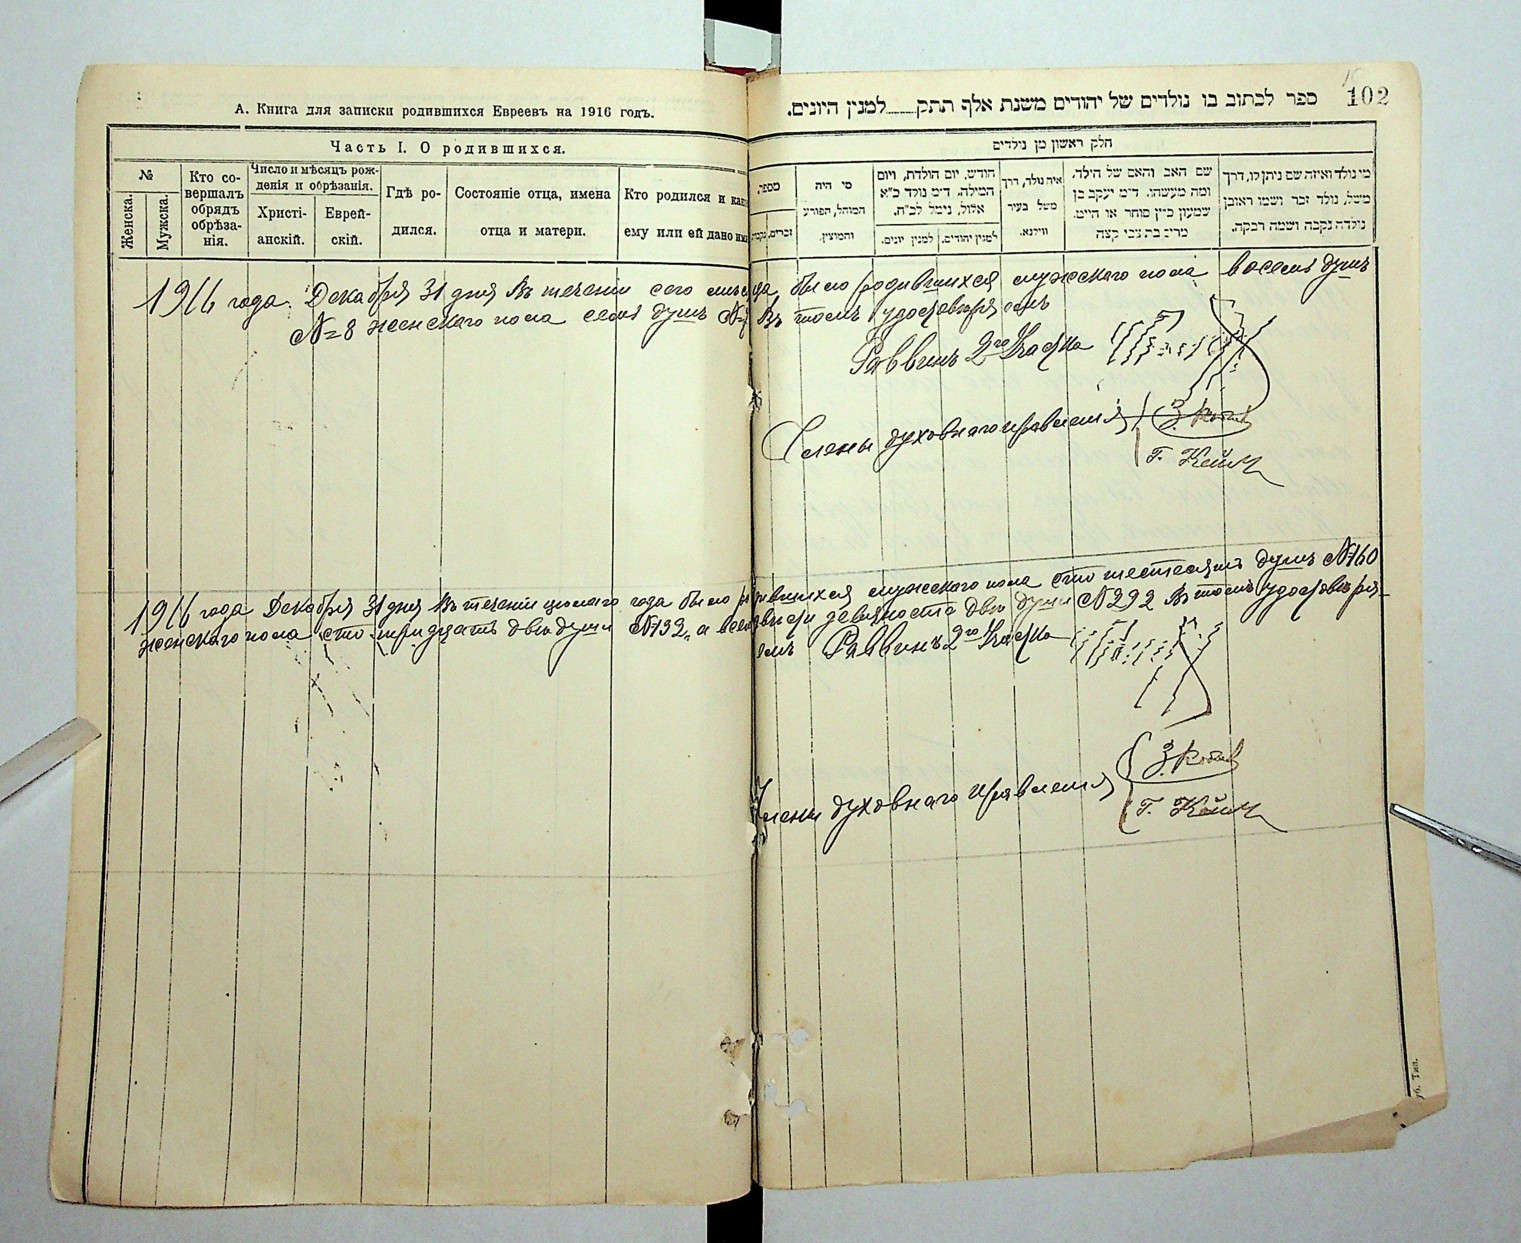 А. Книга для записки родившихся Евреевъ на 1916 годъ.
Часть I. О родившихся.
№
Женска.
Мужска.
Кто со-
вершалъ
обрядъ
обрѣза-
нія.
Число и мѣсяцъ рож-
денія и обрѣзанія.
Христі-
анскій.
Еврей-
скій.
Гдѣ ро-
дился.
Состояніе отца, имена
отца и матери.
Кто родился и как
ему или ей дано им
102
ספר לכתוב בו נולדים של יהודים משנת אלף תתק......למנין היונים.
חלק ראשון מן נולדים
מספר,
זכרים, נקבו
מי היה
המוהל, הפורע
והמוצץ.
חודש, יום הולדת, ויום
המילה, ד״מ נולד כ״א
אלול, נימל לכ״ח.
למנין יונים.
למנין יהודים.
איה נולד, דרך
משל בעיר
ווילנא.
שם האב והאם של הילד,
ומה מעשהו, ד״מ יעקב בן
שמעון כ״ץ סוחר או חייט,
מרים בת צבי קצה
מי נולד ואיזה שם ניתן לו, דרך
משל, נולד זכר ושמו ראובן
נולדה נקבה ושמה רבקה.
1916 года Декабря 31 дня Въ теченіи сего мѣсяца было родившихся мужескаго пола восемь душъ
№=8 женскаго пола семь душъ №=7 Въ томъ удостовѣряемъ
Раввинъ 2го Участка
Члены духовнаго правленія
Г.
1916 года Декабря 31 дня Въ теченіи цѣлаго года было родившихся мужескаго пола сто шестьдесятъ душъ №160
женскаго пола сто тридцать двѣ души №132, а всего двѣсти девяносто двѣ души №292 Въ томъ удостовѣря-
емъ Раввинъ 2го Участка
Члены духовнаго правленія
Г.
уб. Тип.